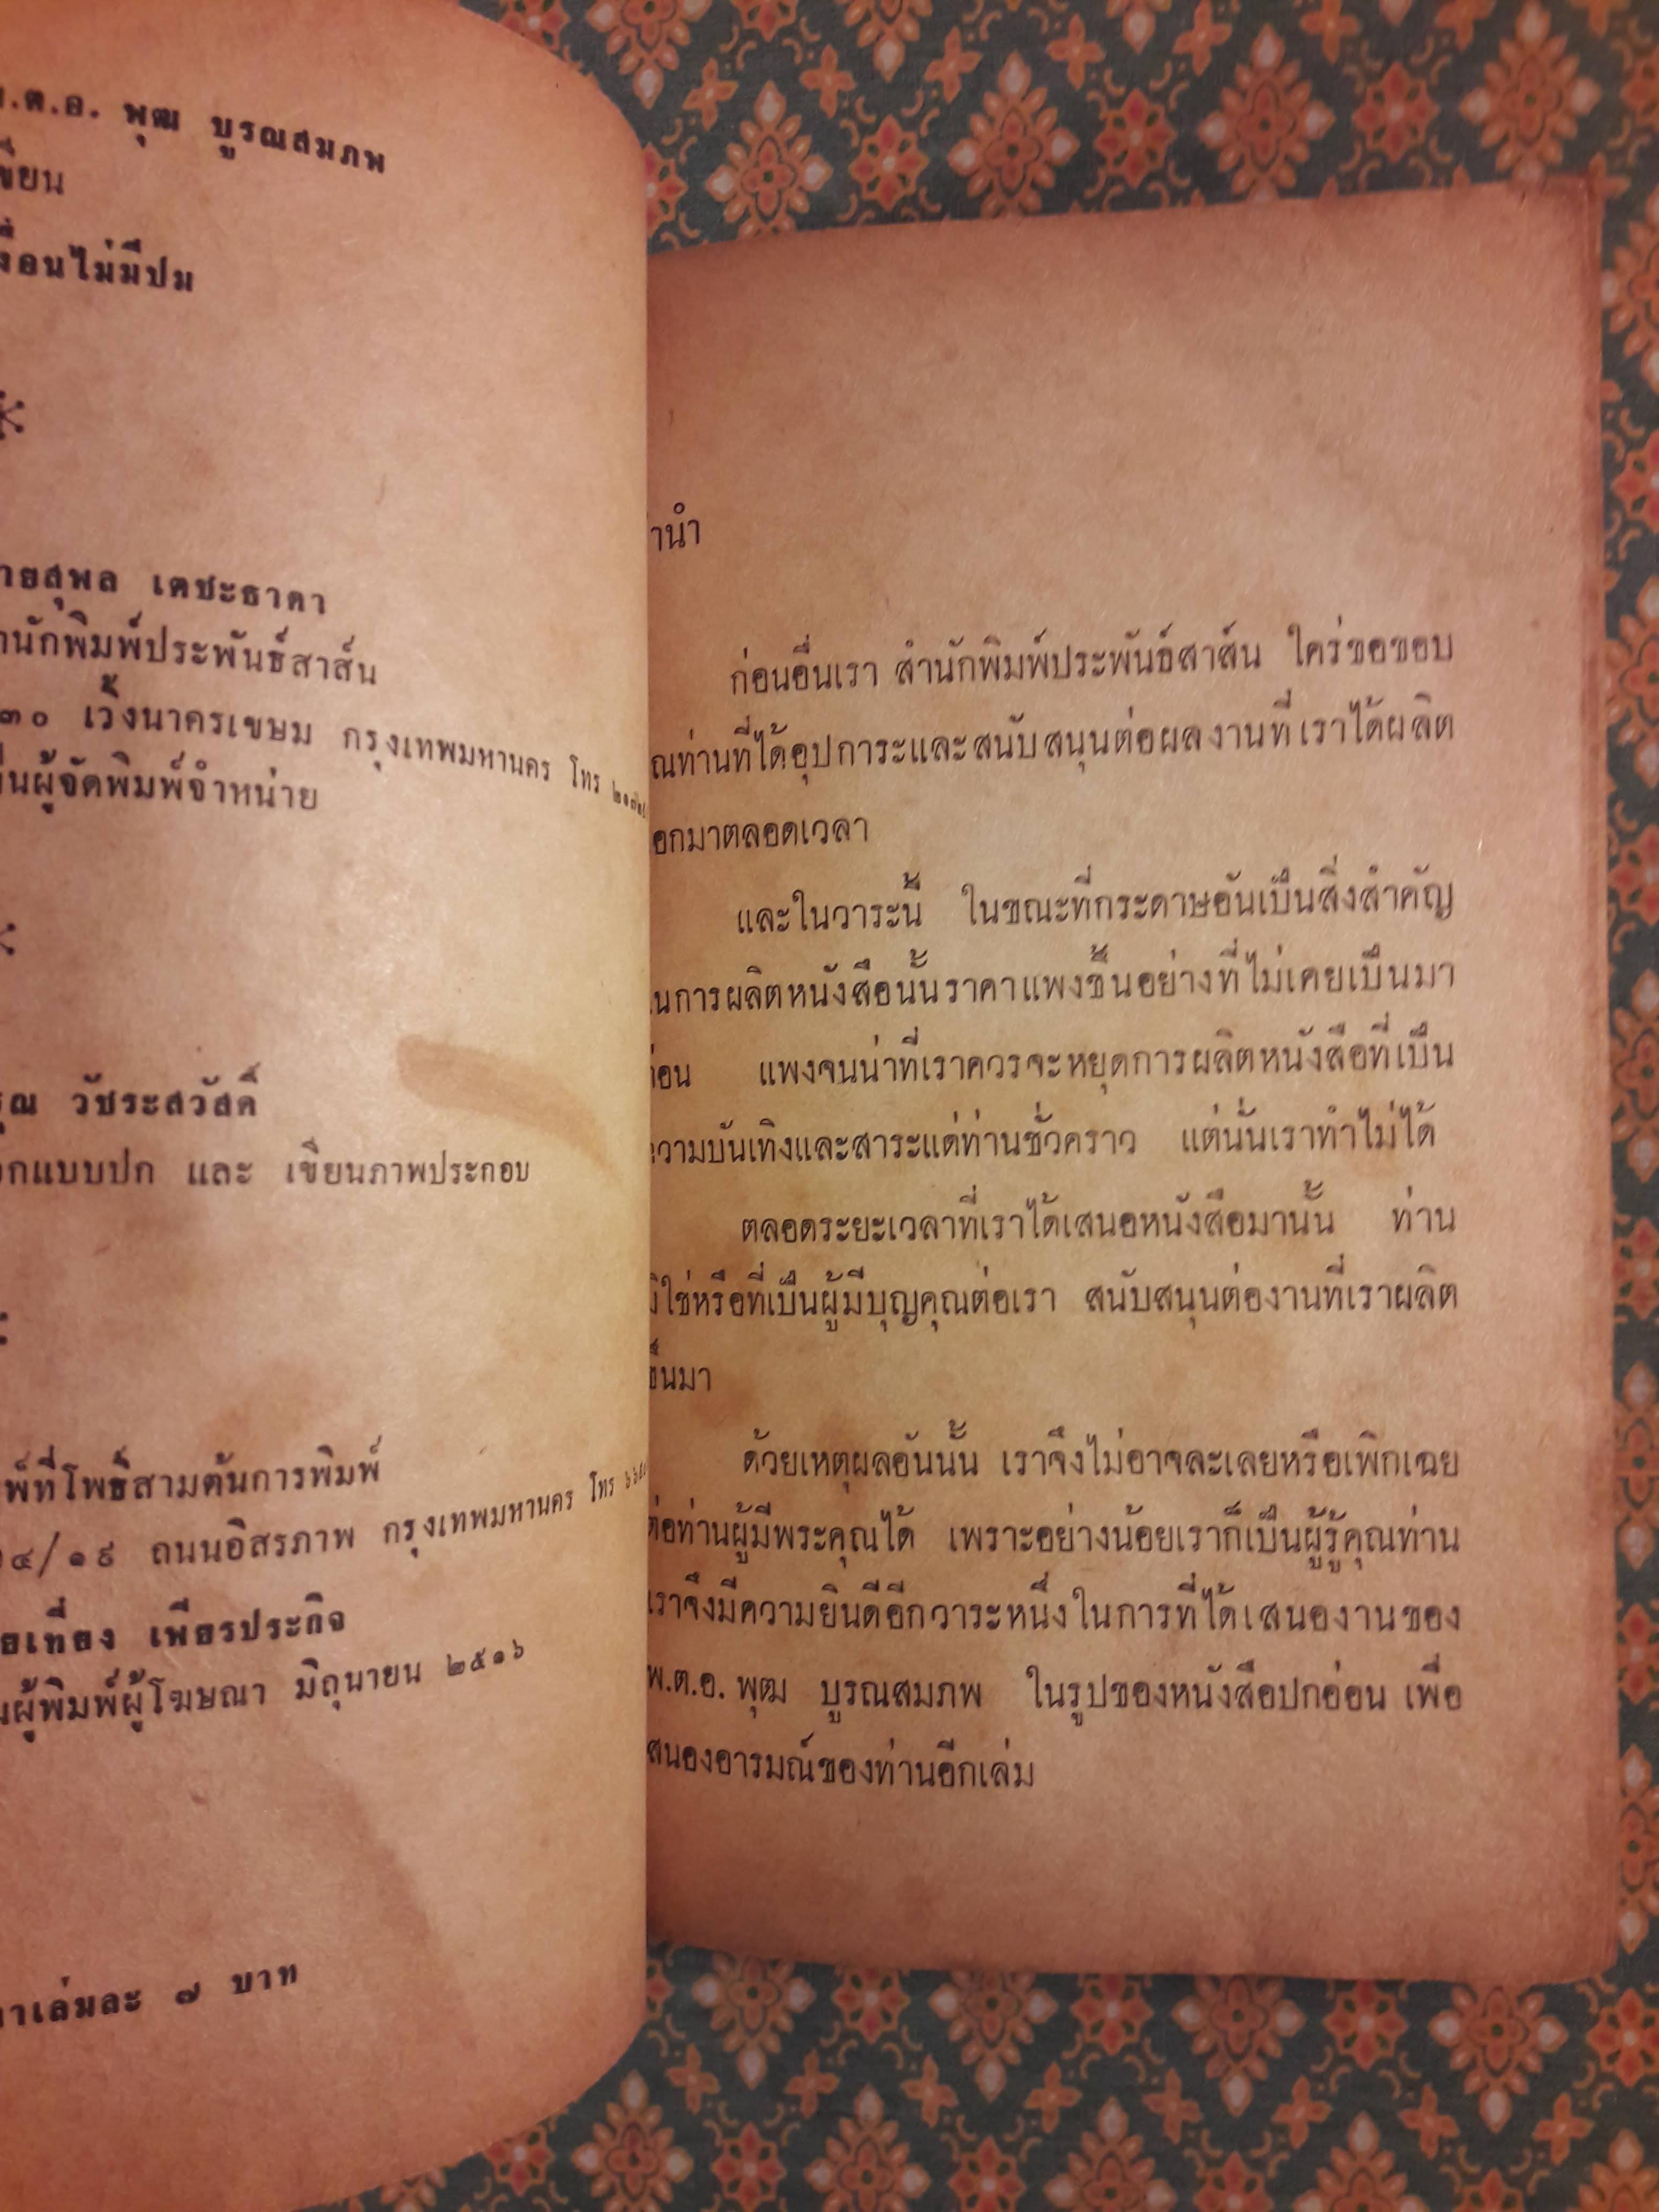 พ.ต.อ. พุฒ บูรณสมภพ
เขียน
เงื่อนไม่มีปม
นายสุพล เตชะธาดา
สำนักพิมพ์ประพันธ์สาส์น
๓๐ เวิ้งนาครเขษม กรุงเทพมหานคร โทร
เป็นผู้จัดพิมพ์จำหน่าย
วัชระสวัสดิ์
ออกแบบปก และ เขียนภาพประกอบ
พิมพ์ที่โพธิ์สามต้นการพิมพ์
๔/๑๙ ถนนอิสรภาพ กรุงเทพมหานคร โทร
เพียรประกิจ
เป็นผู้พิมพ์ผู้โฆษณา มิถุนายน ๒๕๑๖
ราคาเล่มละ ๗ บาท
คำนำ
ก่อนอื่นเรา สำนักพิมพ์ประพันธ์สาส์น ใคร่ขอขอบ
คุณท่านที่ได้อุปการะและสนับสนุนต่อผลงานที่เราได้ผลิต
ออกมาตลอดเวลา
และในวาระนี้ ในขณะที่กระดาษอันเป็นสิ่งสำคัญ
ในการผลิตหนังสือนั้นราคาแพงขึ้นอย่างที่ไม่เคยเป็นมา
ก่อน แพงจนน่าที่เราควรจะหยุดการผลิตหนังสือที่เป็น
ความบันเทิงและสาระแด่ท่านชั่วคราว แต่นั่นเราทำไม่ได้
ตลอดระยะเวลาที่เราได้เสนอหนังสือมานั้น ท่าน
มิใช่หรือที่เป็นผู้มีบุญคุณต่อเรา สนับสนุนต่องานที่เราผลิต
ขึ้นมา
ด้วยเหตุผลอันนั้น เราจึงไม่อาจละเลยหรือเพิกเฉย
ต่อท่านผู้มีพระคุณได้ เพราะอย่างน้อยเราก็เป็นผู้รู้คุณท่าน
เราจึงมีความยินดีอีกวาระหนึ่งในการที่ได้เสนองานของ
พ.ต.อ. พุฒ บูรณสมภพ ในรูปของหนังสือปกอ่อน เพื่อ
สนองอารมณ์ของท่านอีกเล่ม